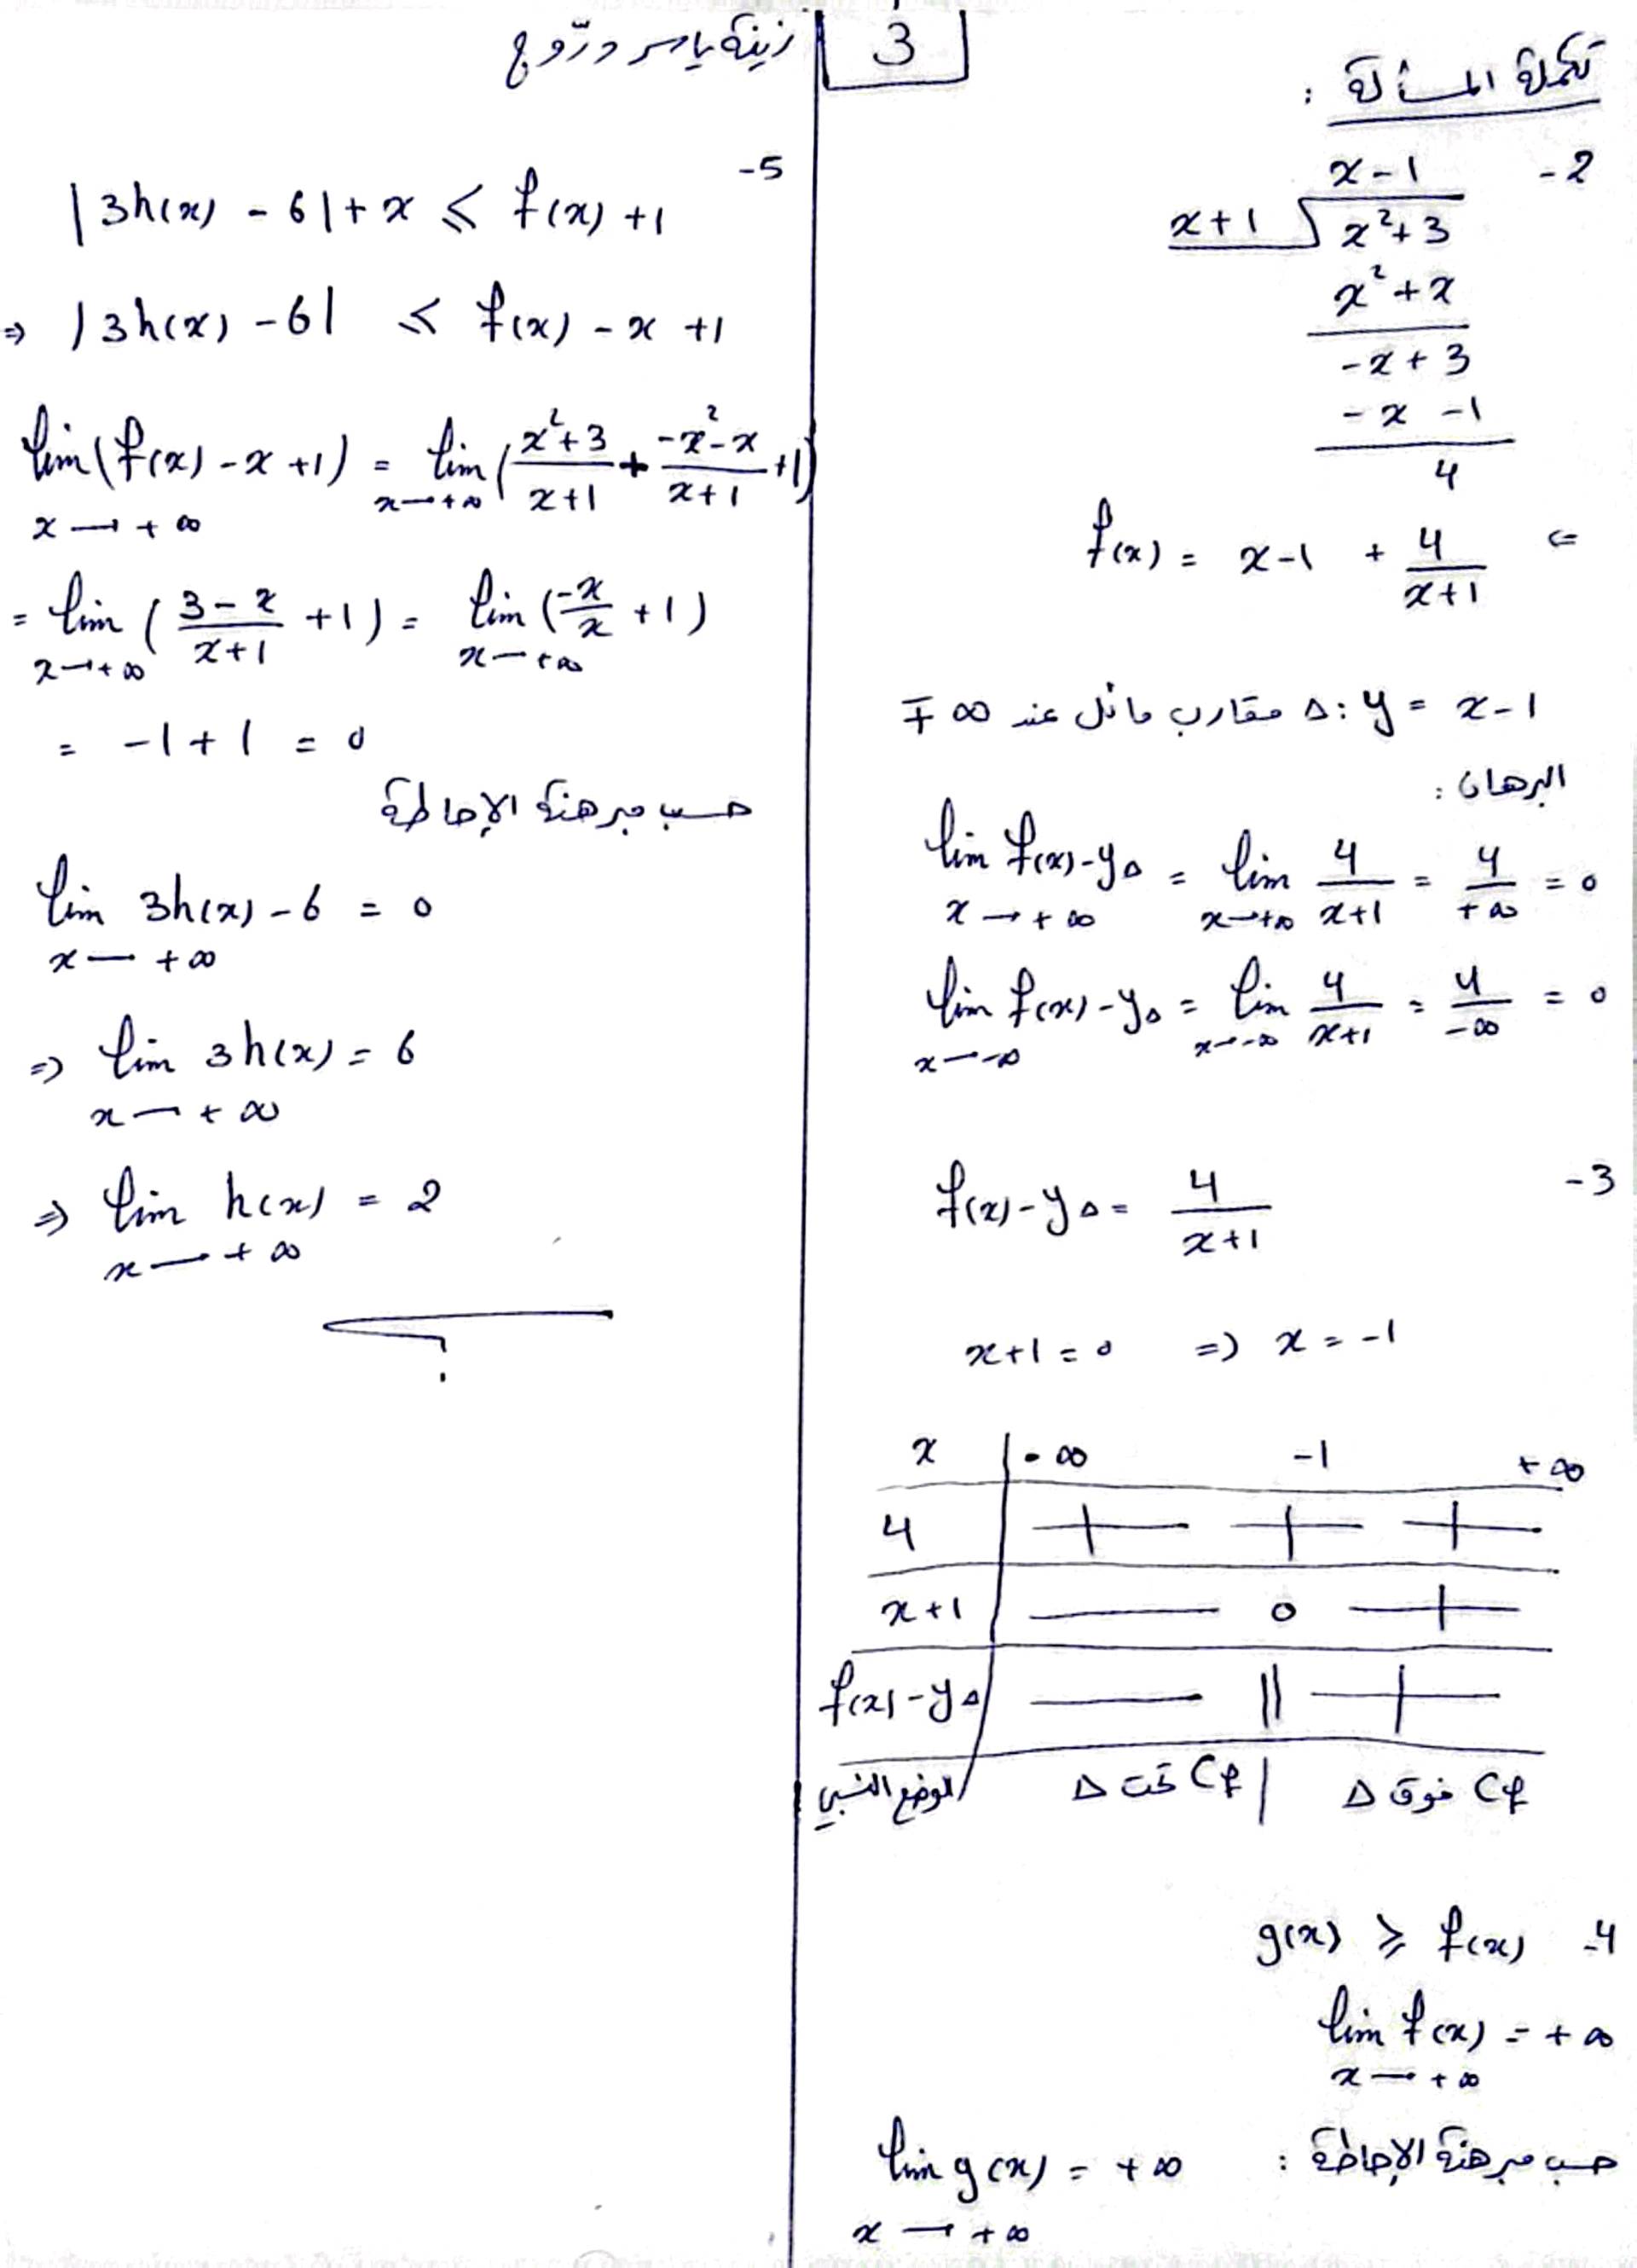 3
زينة ياسر درّوج
تكملة المسألة :
-2
x-1
x+1 √ x²+3
x²+x
-x+3
-x-1
4
⇐ f(x) = x-1 + 4/(x+1)
Δ: y = x-1 مقارب مائل عند ∓∞
البرهان :
lim f(x)-yΔ = lim 4/(x+1) = 4/+∞ = 0
x→+∞ x→+∞
lim f(x)-yΔ = lim 4/(x+1) = 4/-∞ = 0
x→-∞ x→-∞
-3
f(x)-yΔ = 4/(x+1)
x+1=0 ⇒ x=-1
x | -∞ -1 +∞
4 | + + +
x+1 | - 0 +
f(x)-yΔ | - || +
الوضع النسبي / Cf تحت Δ | Cf فوق Δ
-4 g(x) ⩾ f(x)
lim f(x) = +∞
x→+∞
حسب مبرهنة الإحاطة :
lim g(x) = +∞
x→+∞
-5
|3h(x) - 6| + x ⩽ f(x) +1
⇒ |3h(x) -6| ⩽ f(x) - x +1
lim(f(x)-x+1) = lim((x²+3)/(x+1) + (-x²-x)/(x+1) +1)
x→+∞ x→+∞
= lim((3-x)/(x+1) +1) = lim(-x/x +1)
x→+∞ x→+∞
= -1+1 = 0
حسب مبرهنة الإحاطة
lim 3h(x)-6 = 0
x→+∞
⇒ lim 3h(x) = 6
x→+∞
⇒ lim h(x) = 2
x→+∞